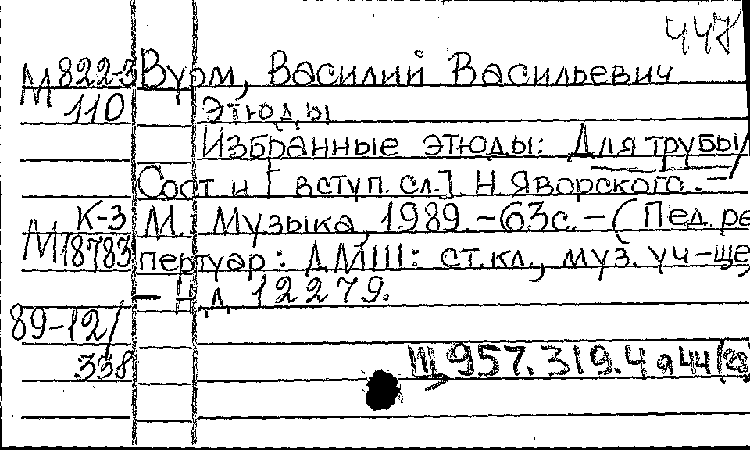 447
М 822-3 Вурм, Василий Васильевич
110 Этюды
Избранные этюды: Для трубы/
Сост. и [вступ. сл.] Н. Яворского. –
К-3 М.: Музыка, 1989. – 63 с. – (Пед. ре
М18783 пертуар: ДМШ: ст. кл., муз. уч-ще)
– Н.Д. 12279.
89-12/
338
Щ957.319.4я44(2)